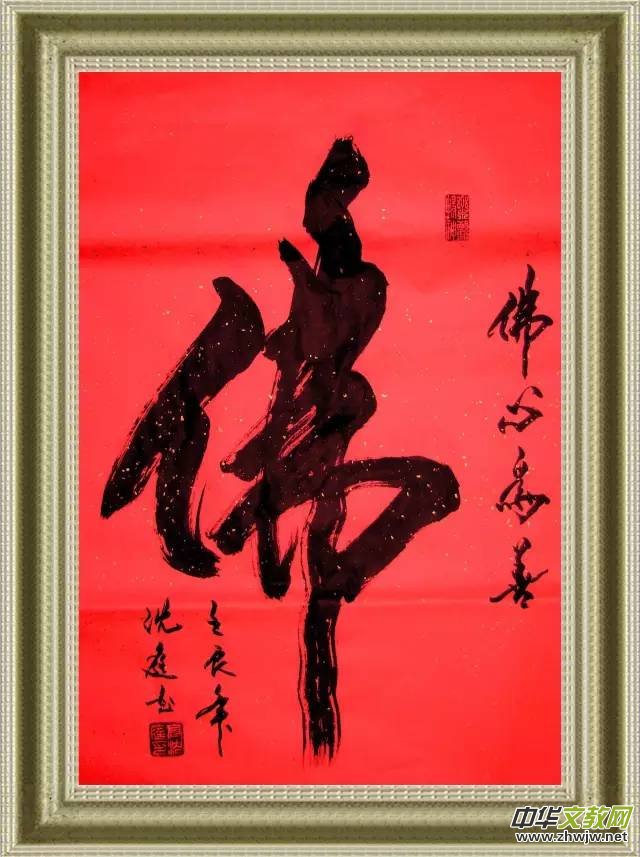 佛心善
佛
壬辰年
庭书
中华文教网
www.zhwjw.net